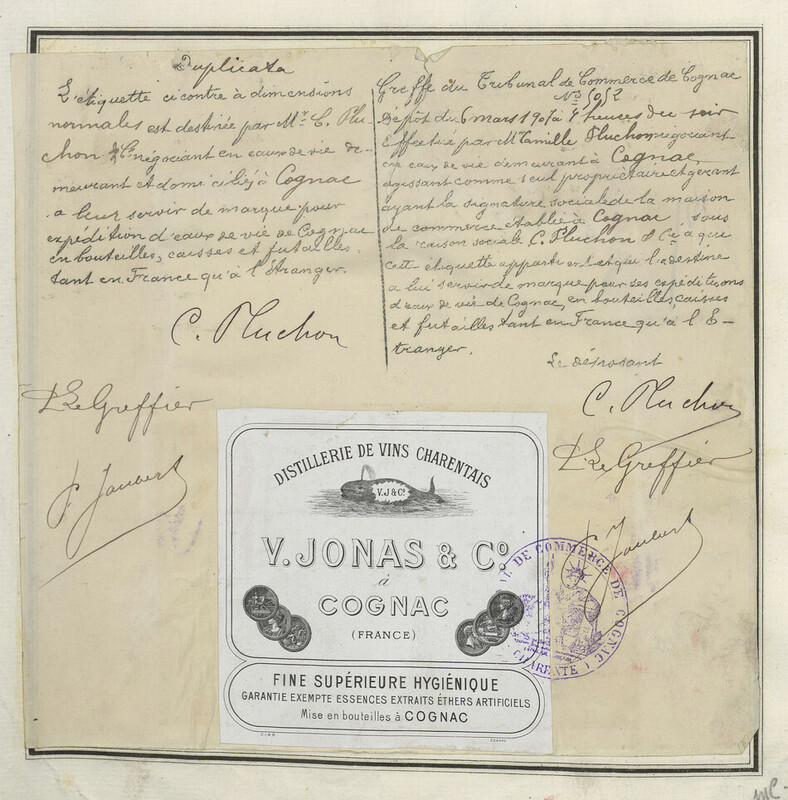 Duplicata
L'étiquette ci contre à dimensions
normales est destinée par Mr. C. Plu-
chon & Cie négociant en eaux de vie de-
meurant et domiciliés à Cognac
a leur servir de marque pour
expédition d'eaux de vie de Cognac
en bouteilles, caisses et futailles
tant en France qu'à l'étranger.
C. Pluchon
Le Greffier
Jaubert
Greffe du Tribunal de Commerce de Cognac
No 5052
Dépôt du 6 mars à heures du soir
Effectué par M Camille Pluchon négociant
en eaux de vie demeurant à Cognac,
agissant comme seul propriétaire et gérant
ayant la signature sociale de la maison
de commerce établie à Cognac sous
la raison sociale C. Pluchon & Cie à qui
cette étiquette appartient et qui l'a destine
a lui servir de marque pour ses expéditions
d'eaux de vie de Cognac, en bouteilles, caisses
et futailles tant en France qu'à l'E-
tranger.
Le déposant
C. Pluchon
Le Greffier
Jaubert
DISTILLERIE DE VINS CHARENTAIS
V.J & Co.
V. JONAS & Co.
à
COGNAC
(FRANCE)
FINE SUPÉRIEURE HYGIÉNIQUE
GARANTIE EXEMPTE ESSENCES EXTRAITS ÉTHERS ARTIFICIELS
Mise en bouteilles à COGNAC
DE COMMERCE DE COGNAC
CHARENTE